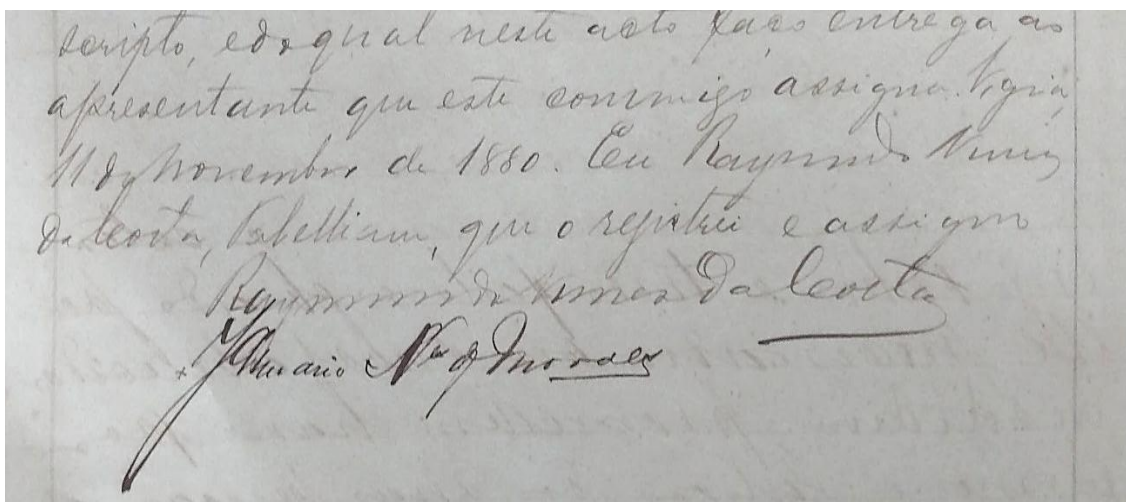 scripto, e do qual neste acto faço entrega ao
apresentante que este commigo assigna. Vigia,
11 de Novembro de 1880. Eu Raymundo Nunes
da Costa, Tabelliam, que o registrei e assigno
Raymundo Nunes da Costa
Januario Nes de Moraes